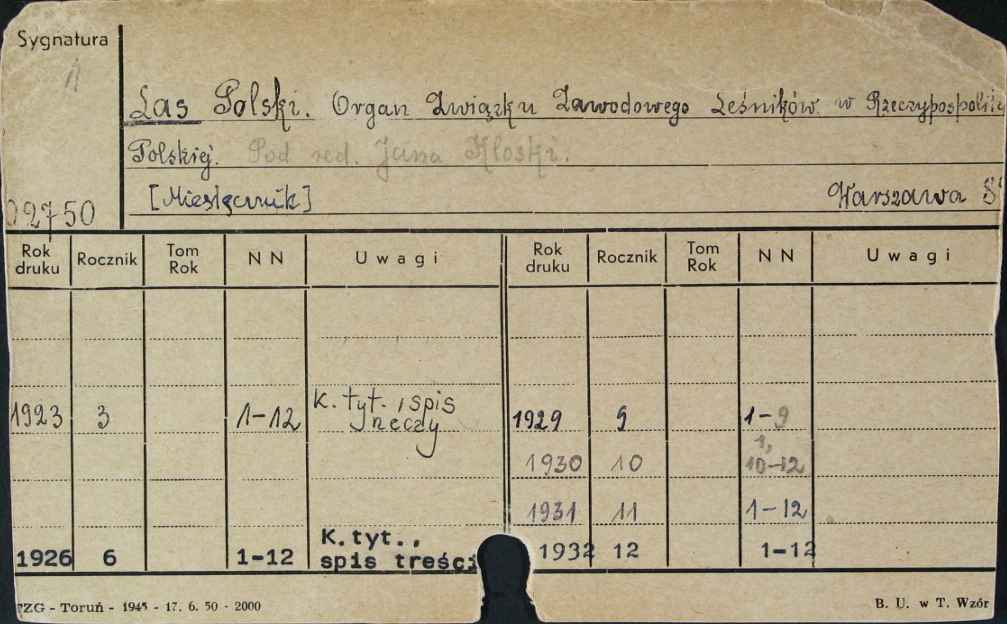 Sygnatura
Las Polski. Organ Związku Zawodowego Leśników w Rzeczypospolitej
Polskiej. Pod red. Jana Kłoski.
[Miesięcznik] Warszawa 8°
02750
Rok druku Rocznik Tom Rok NN Uwagi Rok druku Rocznik Tom Rok NN Uwagi
1923 3 1-12 K. tyt. i spis rzeczy 1929 9 1-9
1930 10 1, 10-12
1931 11 1-12
1926 6 1-12 K.tyt., spis treści 1932 12 1-12
TZG - Toruń - 1945 - 17. 6. 50 - 2000 B. U. w T. Wzór